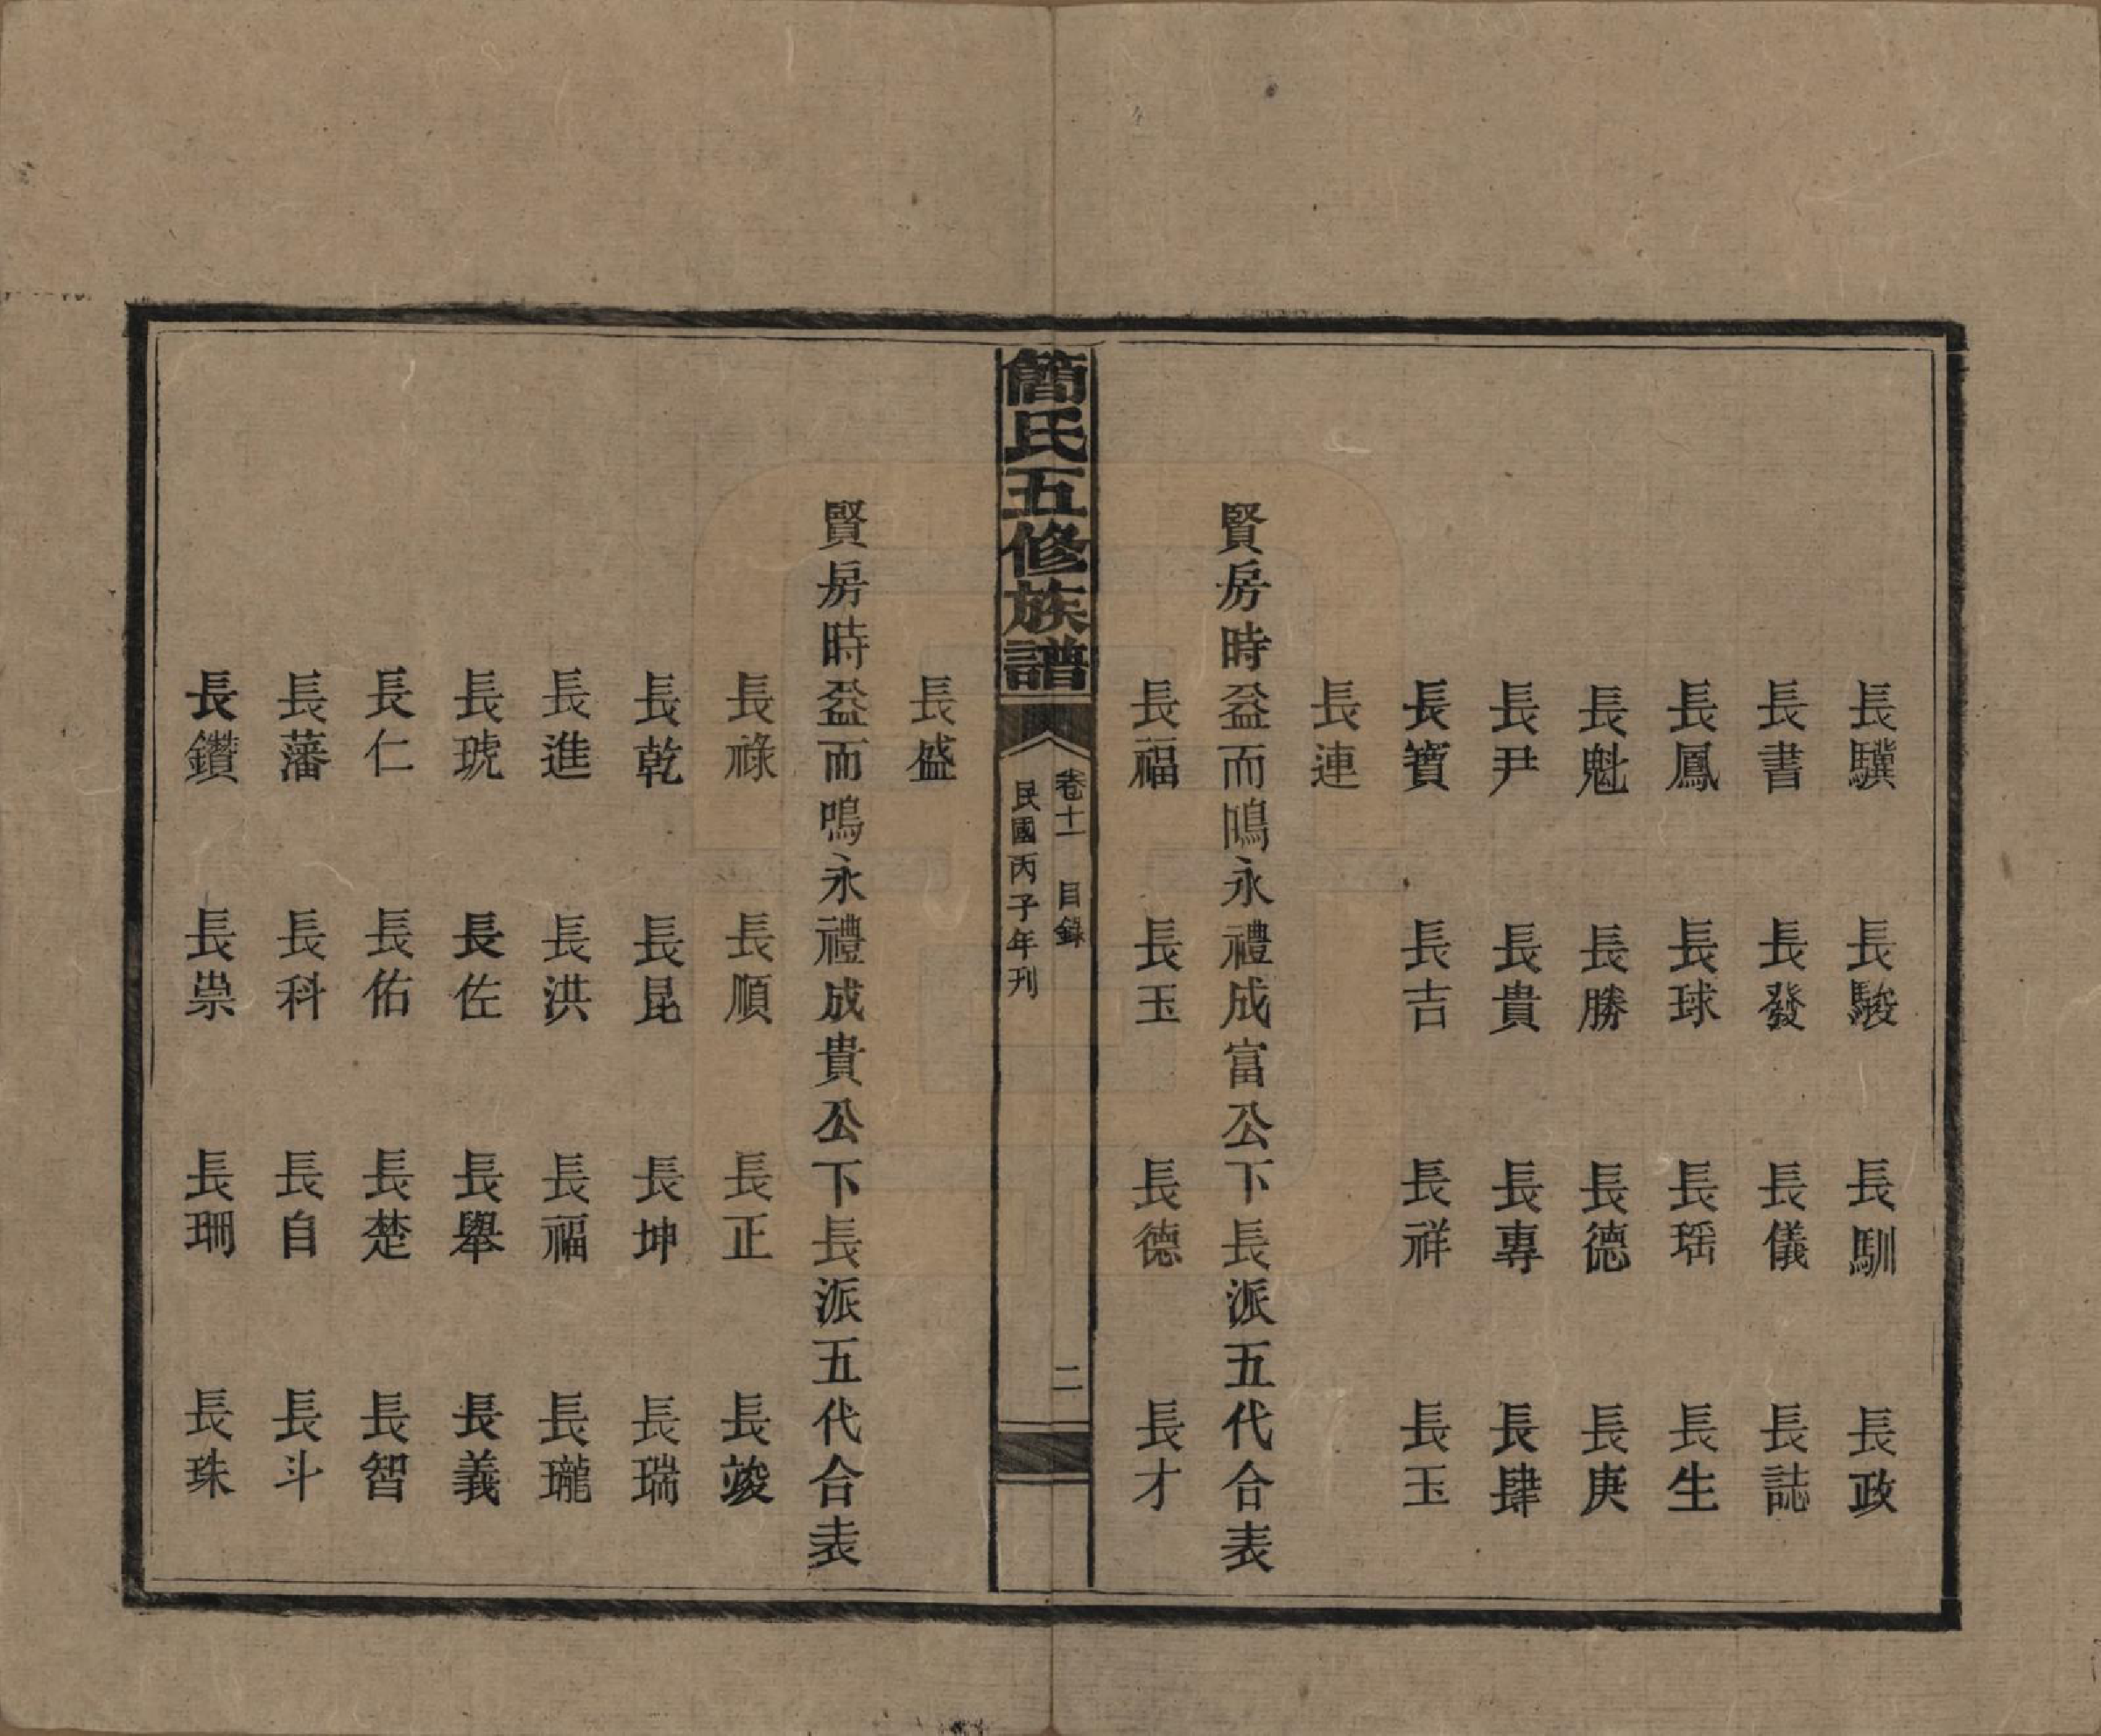 長驥 長駿 長馴 長政
長書 長發 長儀 長誌
長鳳 長球 長瑶 長生
長魁 長勝 長德 長庚
長尹 長貴 長專 長肆
長寶 長吉 長祥 長玉
長連
賢房時益而鳴永禮成富公下長派五代合表
長福 長玉 長德 長才
簡氏五修族譜
卷十一 目錄 二
民國丙子年刊
長盛
賢房時益而鳴永禮成貴公下長派五代合表
長祿 長順 長正 長竣
長乾 長昆 長坤 長瑞
長進 長洪 長福 長瓏
長琥 長佐 長舉 長義
長仁 長佑 長楚 長智
長藩 長科 長自 長斗
長鑽 長祟 長珊 長珠